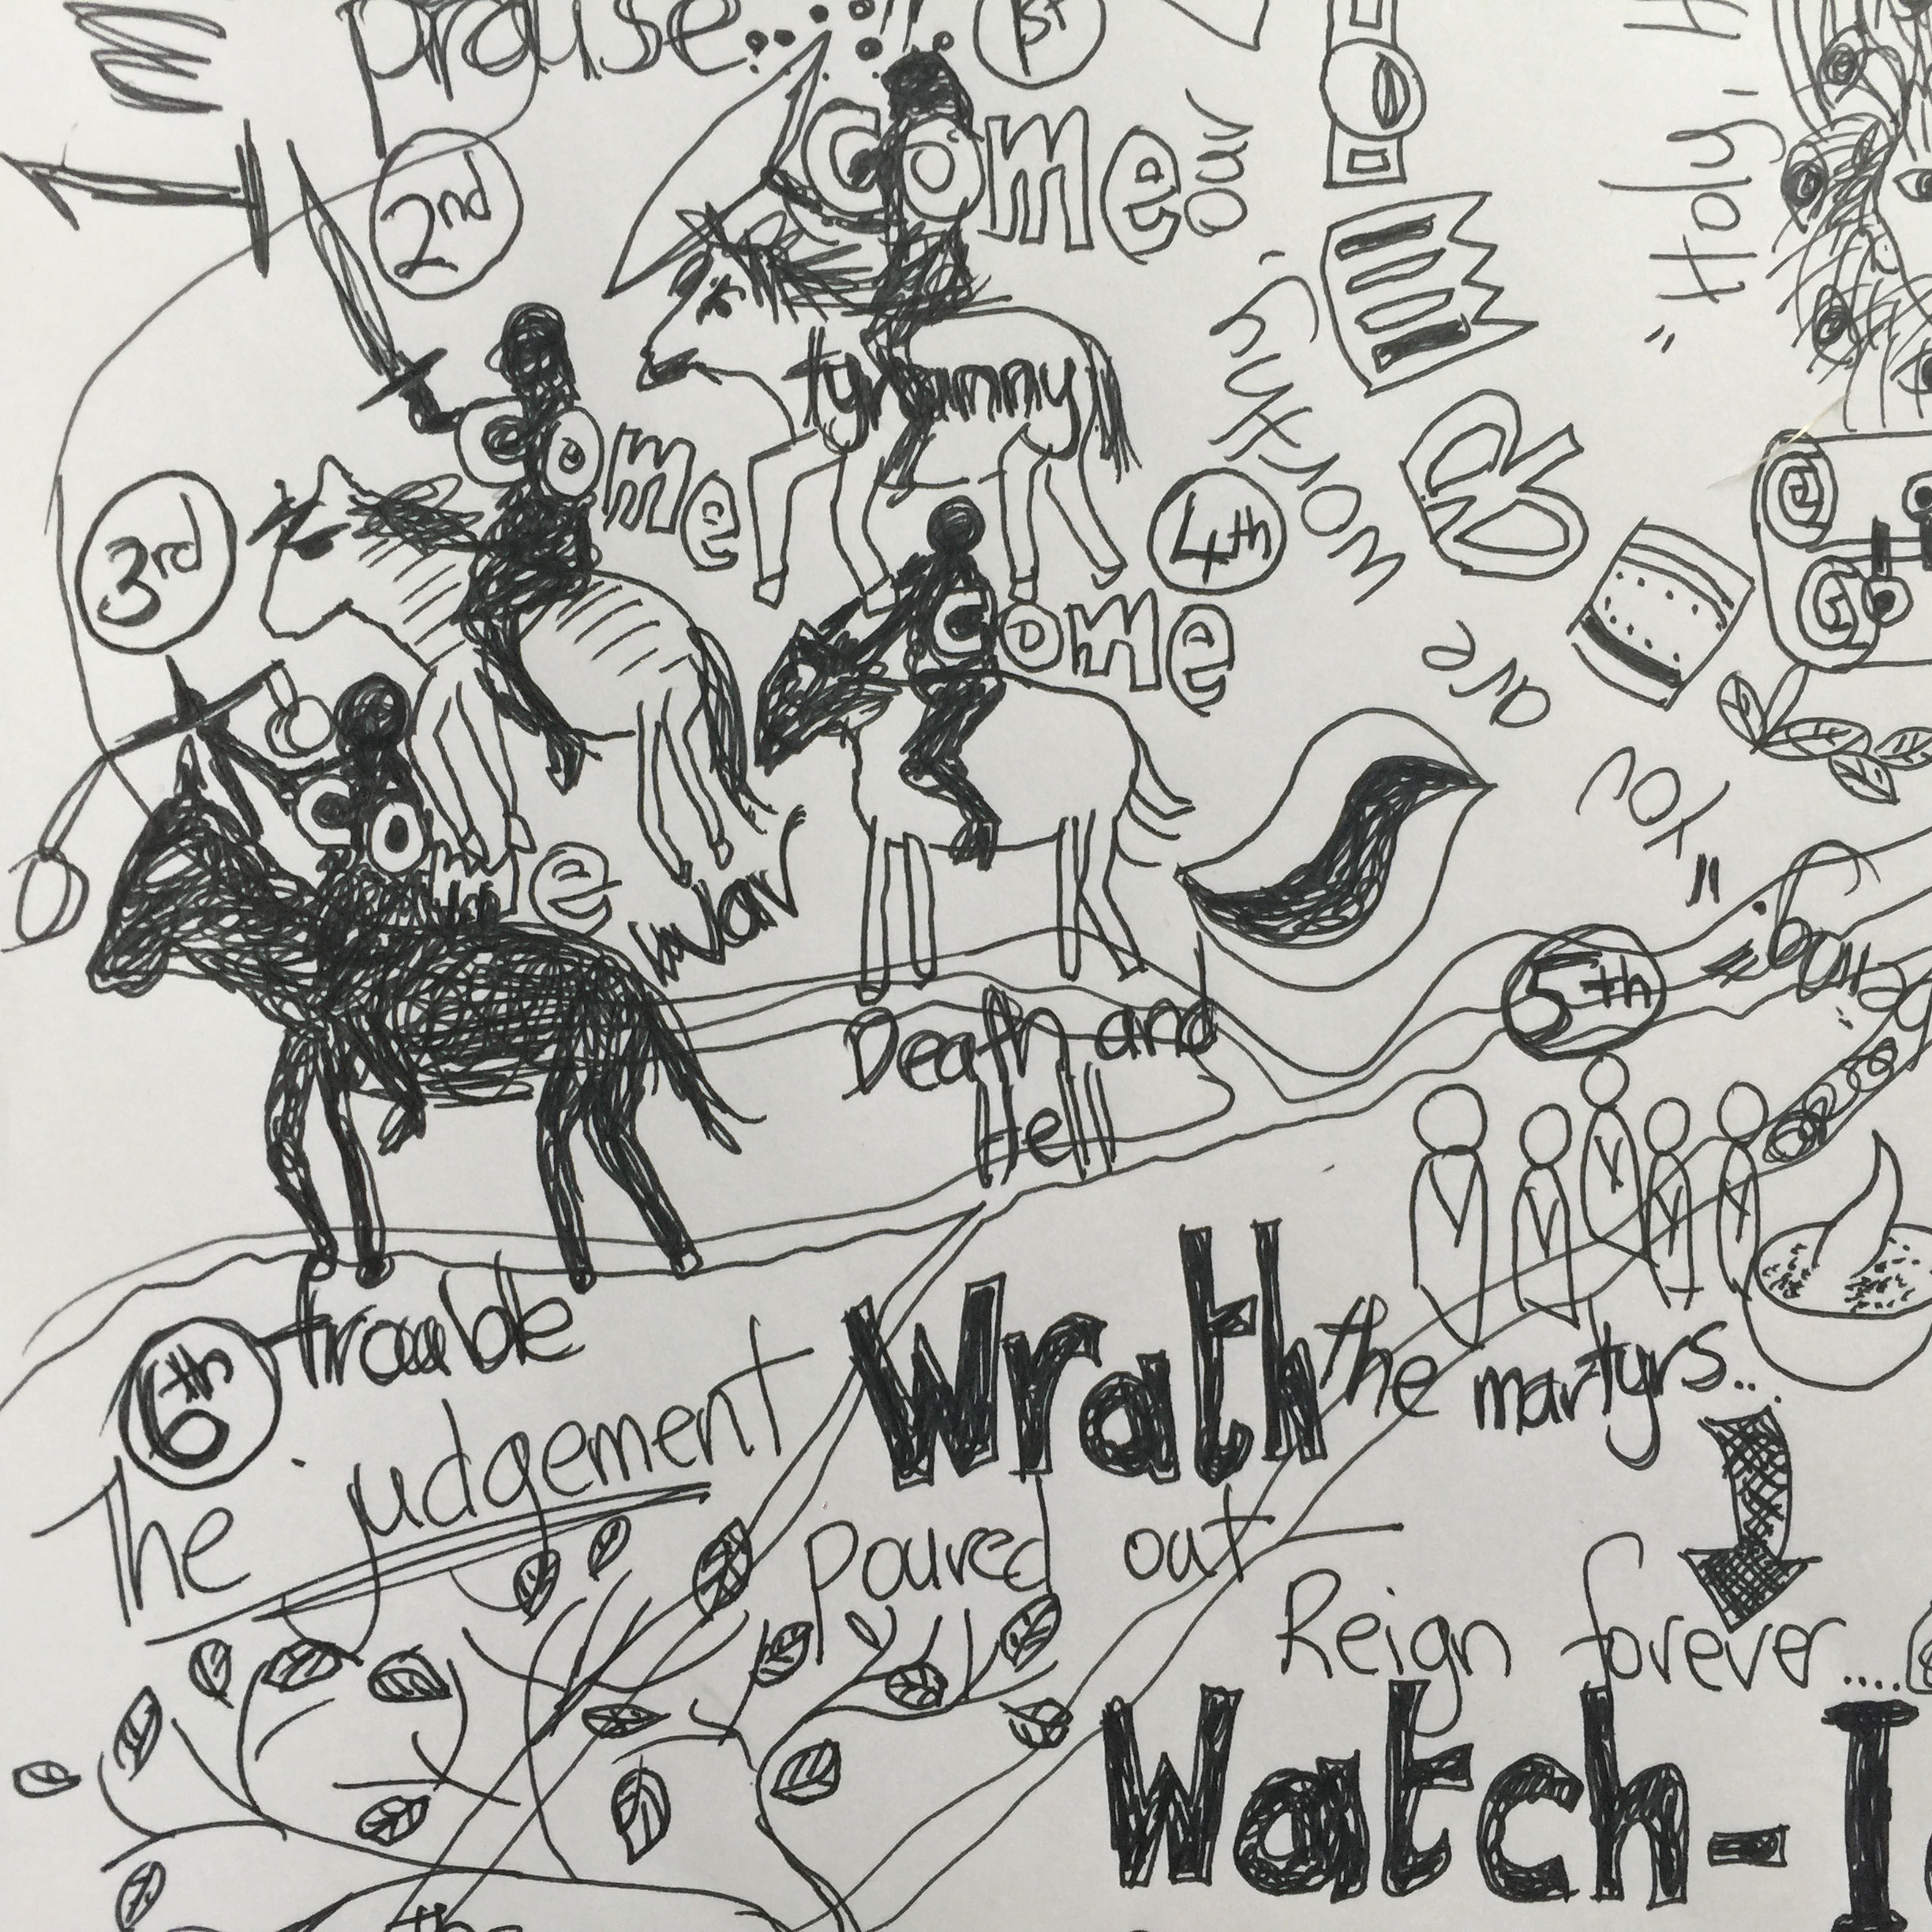 praise...
1st
come
2nd
tyranny
come
3rd
4th
come
come
war
Death and
Hell
"Holy,
"You
are
worthy,
our
5th
6th
trouble
The judgement
Wrath
the martyrs...
Poured out
Reign forever....
Watch-I
the